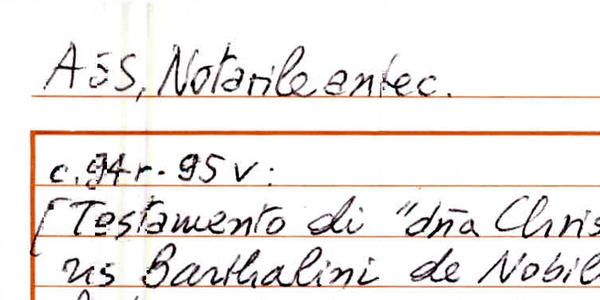 AāS, Notarile antec.
c. 94r - 95v:
[Testamento di "dña Chris
us Barthalini de Nobil